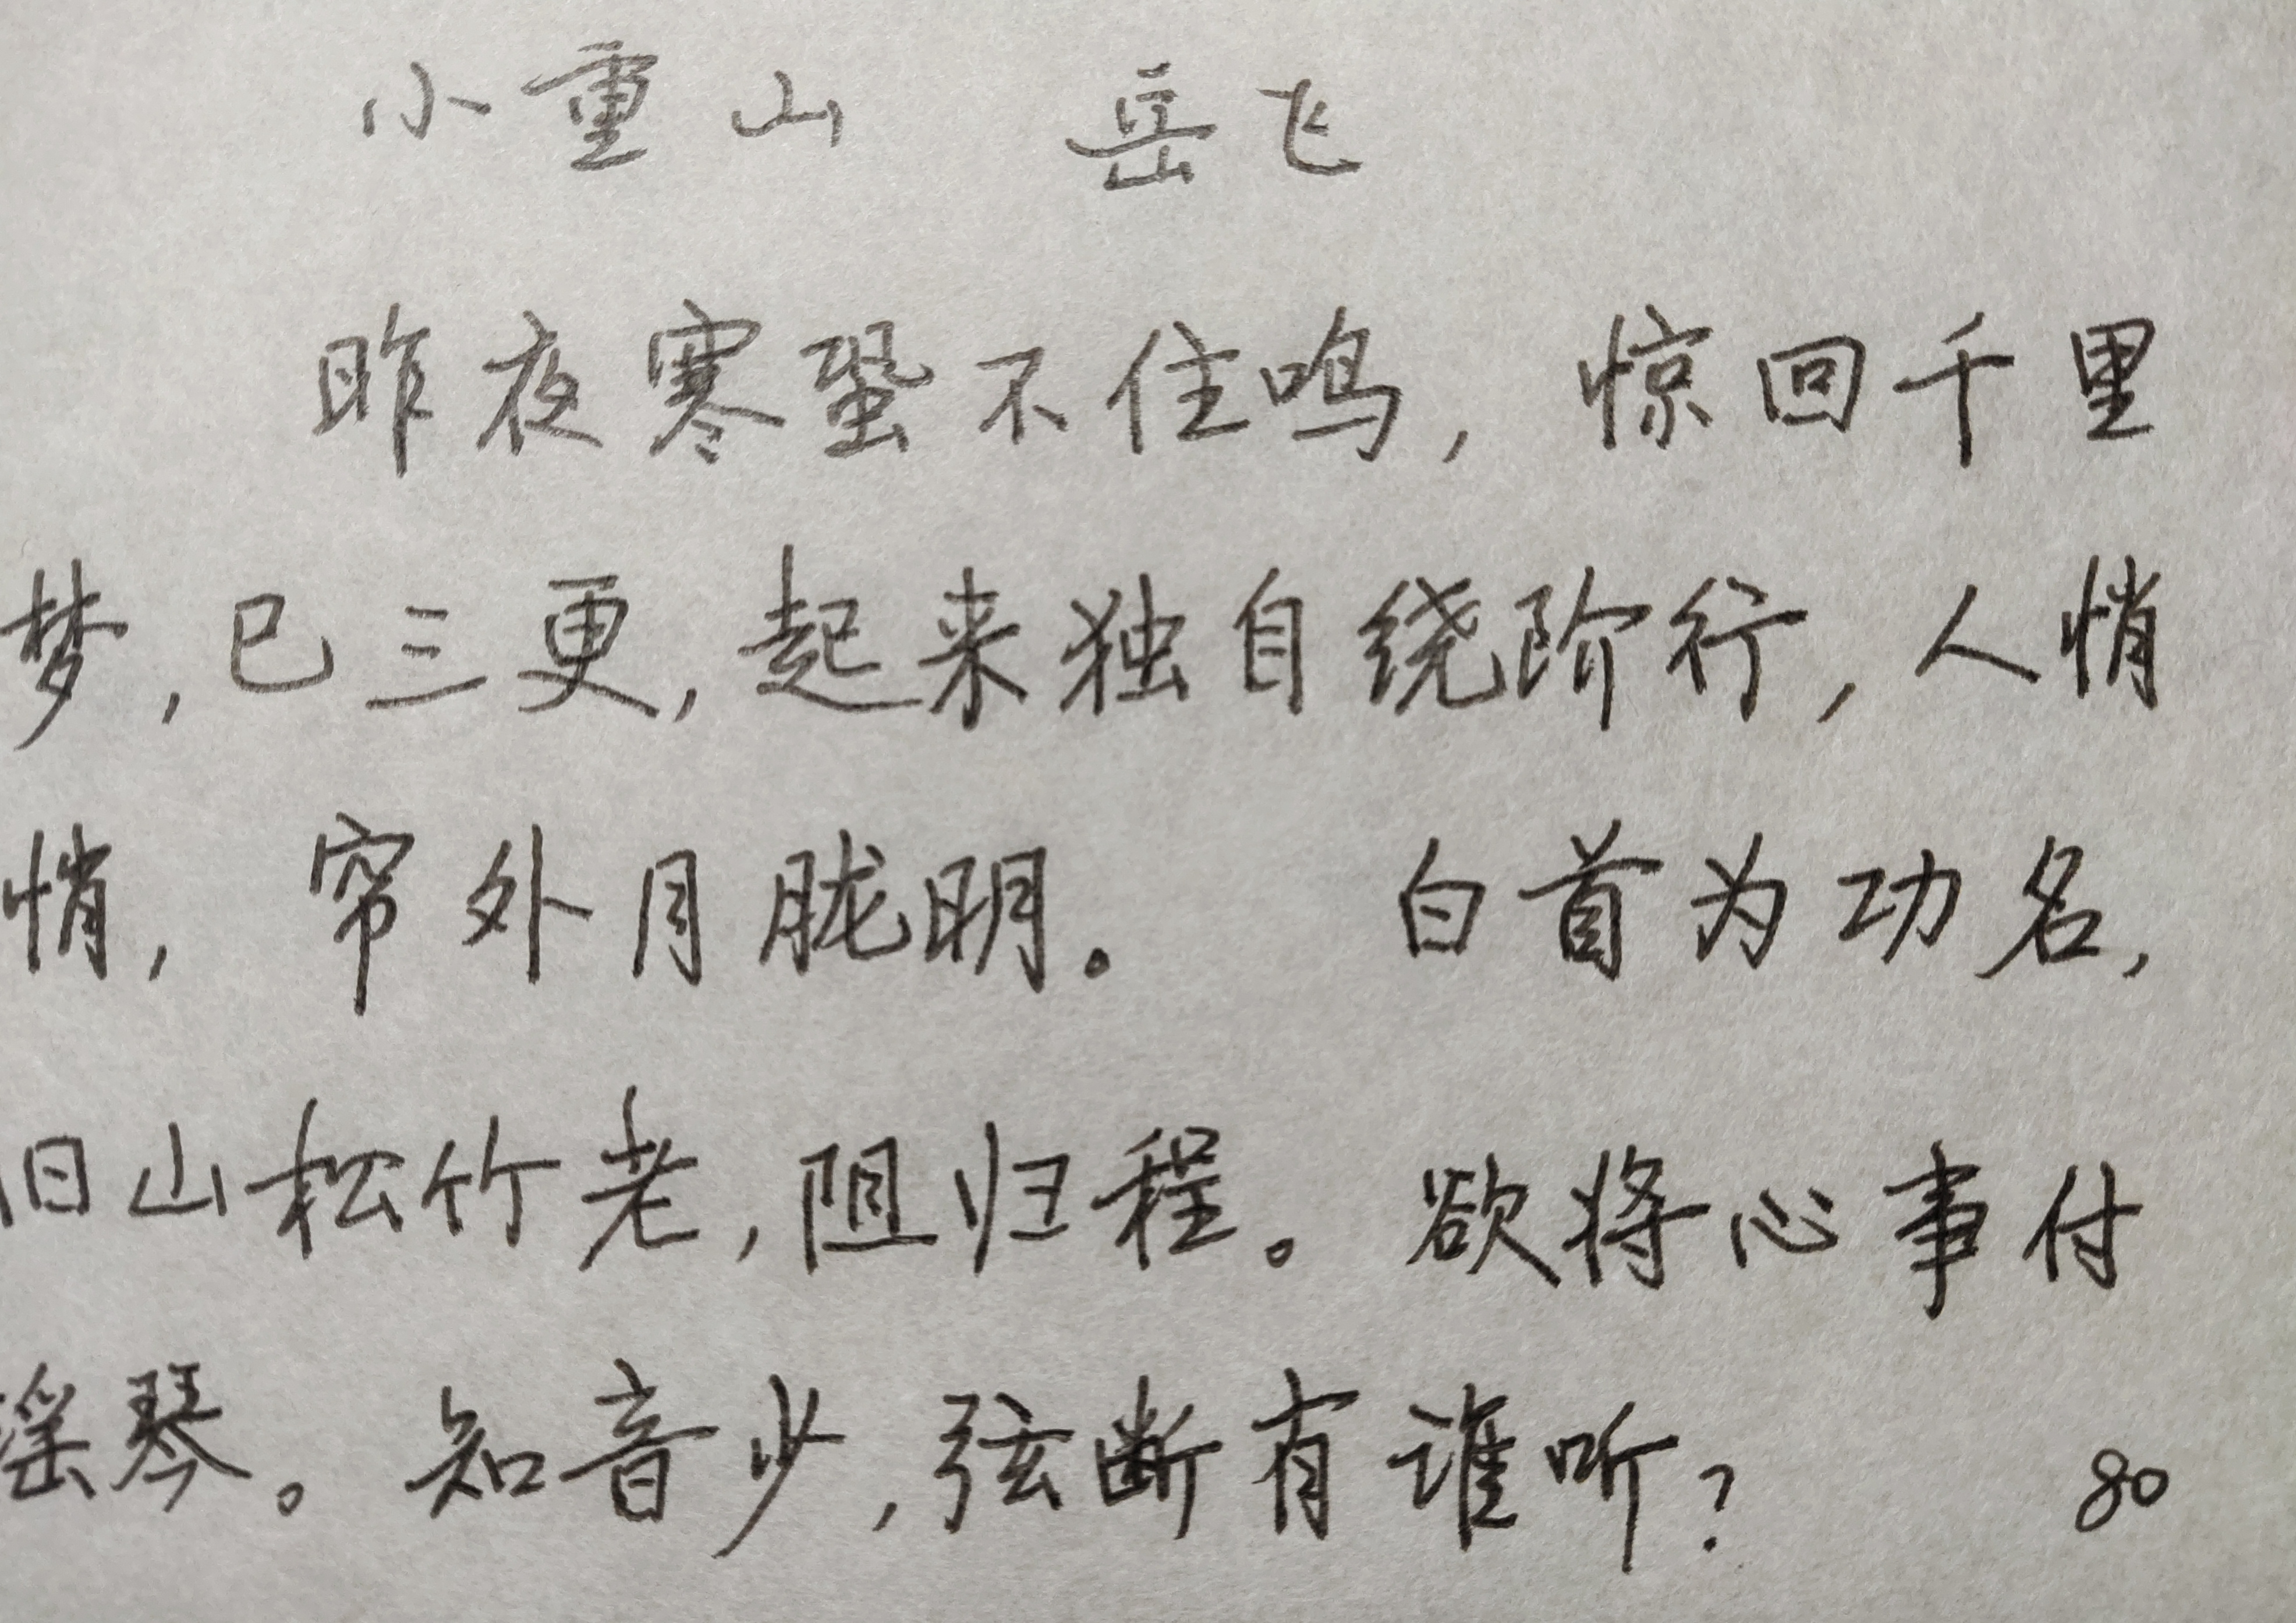 小重山 岳飞
昨夜寒蛩不住鸣，惊回千里
梦，已三更，起来独自绕阶行，人悄
悄，帘外月胧明。 白首为功名，
旧山松竹老，阻归程。欲将心事付
瑶琴。知音少，弦断有谁听？ 80